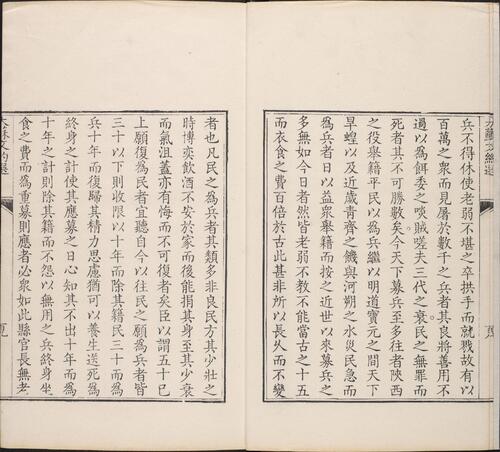 兵不得休使老弱不堪之卒拱手而就戮故有以
百萬之衆而見屠於數千之兵者其良將善用不
過以為餌委之啖賊嗟夫三代之衰民之無罪而
死者其不可勝數矣今天下募兵至多往者陜西
之役舉籍平民以為兵繼以明道寶元之間天下
旱蝗以及近歲青齊之饑與河朔之水災民急而
為兵者日以益衆舉籍而按之近世以來募兵之
多無如今日者然皆老弱不教不能當古之十五
而衣食之費百倍於古此甚非所以長久而不變
者也凡民之為兵者其類多非良民方其少壯之
時博奕飲酒不安於家而後能捐其身至其少衰
而氣沮蓋亦有悔而不可復者矣臣以謂五十已
上願復為民者宜聽自今以往民之願為兵者皆
三十以下則收限以十年而除其籍民三十而為
兵十年而復歸其精力思慮猶可以養生送死為
終身之計使其應募之日心知其不出十年而為
十年之計則除其籍而不怨以無用之兵終身坐
食之費而為重募則應者必衆如此縣官長無老